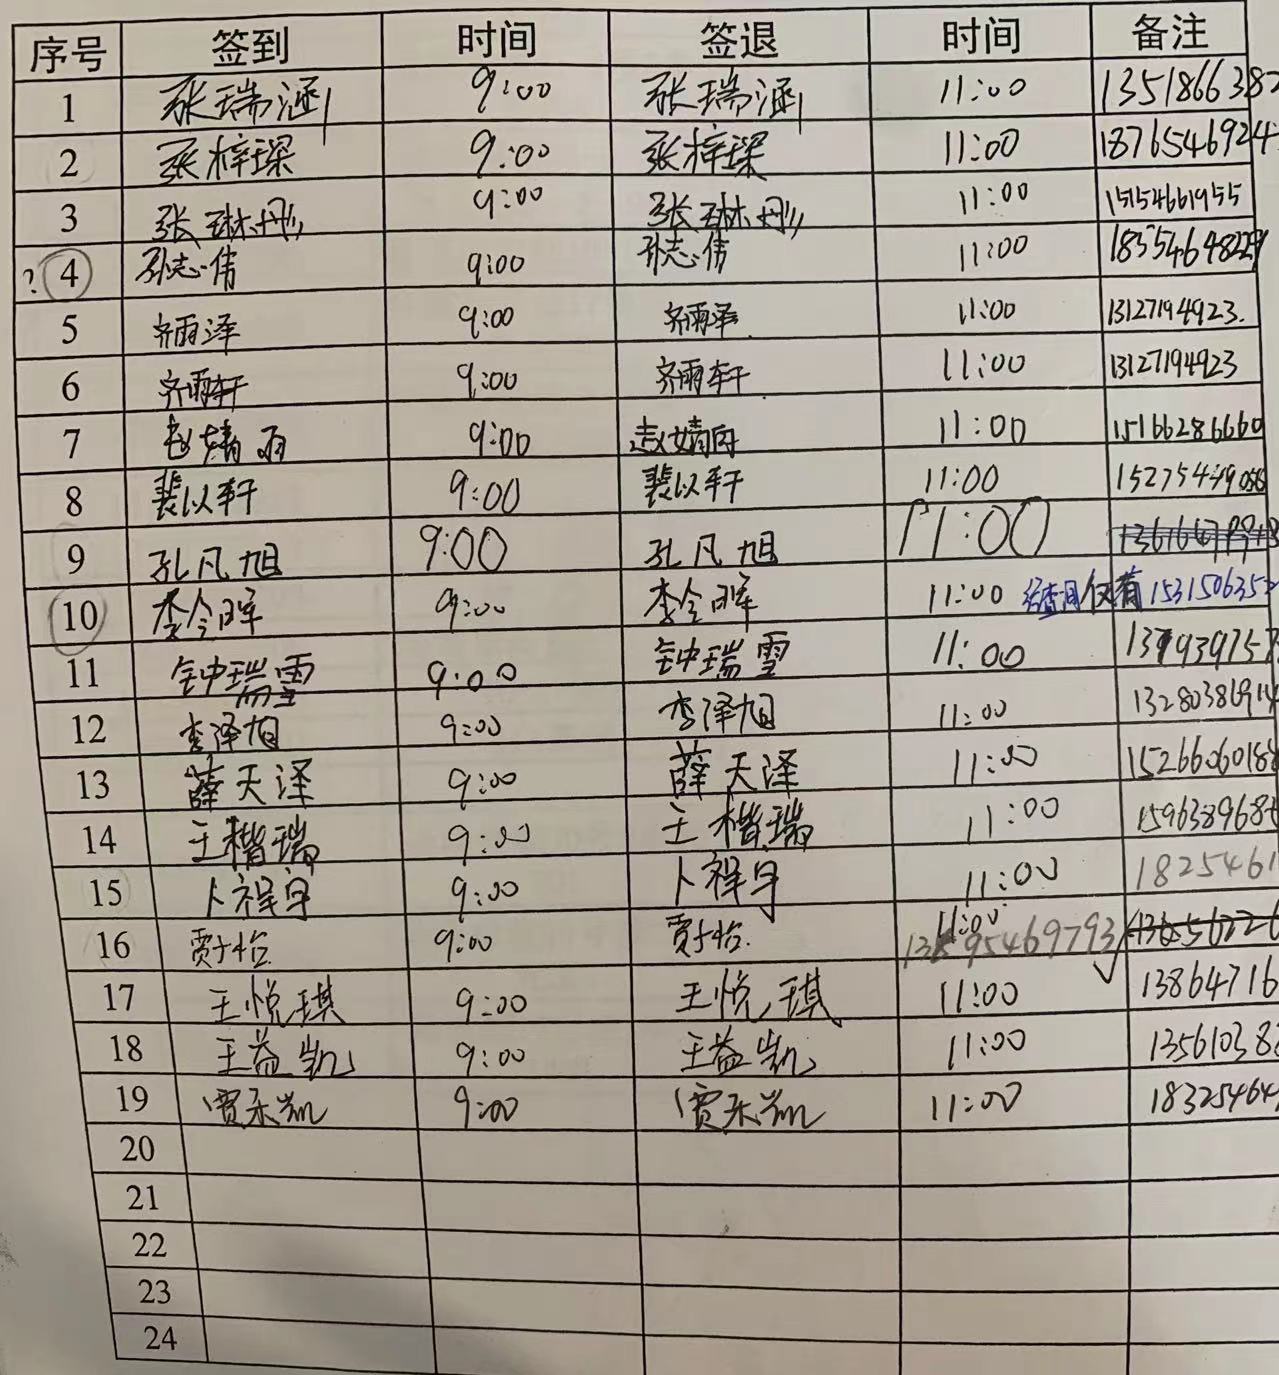 序号 签到 时间 签退 时间 备注
1 张瑞涵 9:00 张瑞涵 11:00 1351866382
2 张梓琛 9:00 张梓琛 11:00 1876546924
3 张琳彤 9:00 张琳彤 11:00 15154661955
? 4 孙志伟 9:00 孙志伟 11:00
5 齐雨泽 9:00 齐雨泽 11:00 13127194923.
6 齐雨轩 9:00 齐雨轩 11:00 13127194923
7 赵婧雨 9:00 赵婧雨 11:00 15166286660
8 裴以轩 9:00 裴以轩 11:00
9 孔凡旭 9:00 孔凡旭 11:00
10 李令晖 9:00 李令晖 11:00 仅有 1531506352
11 钟瑞雪 9:00 钟瑞雪 11:00
12 李泽旭 9:00 李泽旭 11:00 13280386914
13 薛天泽 9:00 薛天泽 11:00 15266060188
14 王楷瑞 9:00 王楷瑞 11:00 159638968
15 卜祥宇 9:00 卜祥宇 11:00 1825461
16 贾于怡 9:00 贾于怡. 11:00
17 王悦琪 9:00 王悦琪 11:00 13864716
18 王益凯 9:00 王益凯 11:00 13561038
19 贾禾凯 9:00 贾禾凯 11:00 18325464
20
21
22
23
24